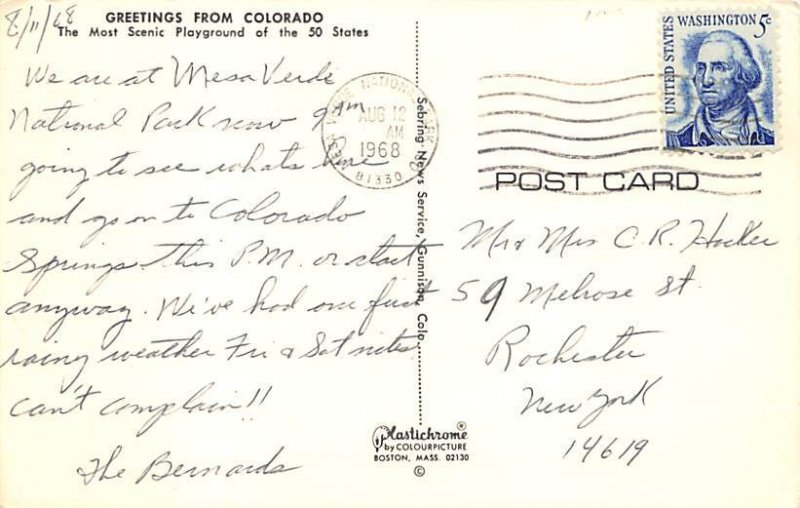 8/11/68
GREETINGS FROM COLORADO
The Most Scenic Playground of the 50 States
We are at Mesa Verde
National Park now 9 AM
going to see whats here
and go on to Colorado
Springs this P.M. or start
anyway. We've had our first
rainy weather Fri & Sat nites
can't complain!!
The Bernards
MESA VERDE NATIONAL PARK
AUG 12
AM
1968
81330
Sebring News Service, Gunnison, Colo.
UNITED STATES
WASHINGTON 5c
POST CARD
Mr & Mrs C. R. Hocker
59 Melrose St.
Rochester
New York
14619
Plastichrome®
by COLOURPICTURE
BOSTON, MASS. 02130
©